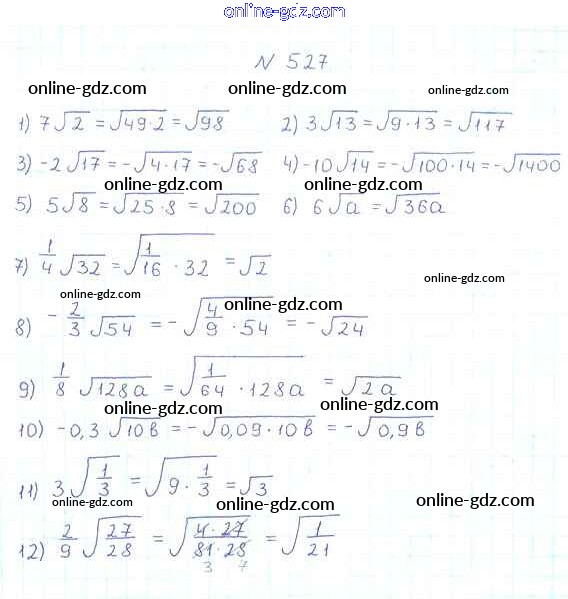 online-gdz.com
N 527
online-gdz.com online-gdz.com online-gdz.com
1) 7√2 = √49·2 = √98 2) 3√13 = √9·13 = √117
online-gdz.com online-gdz.com
3) -2√17 = -√4·17 = -√68 4) -10√14 = -√100·14 = -√1400
online-gdz.com online-gdz.com
5) 5√8 = √25·8 = √200 6) 6√a = √36a
7) 1/4 √32 = √1/16 · 32 = √2
online-gdz.com
online-gdz.com online-gdz.com
8) -2/3 √54 = -√4/9 · 54 = -√24
9) 1/8 √128a = √1/64 · 128a = √2a
online-gdz.com online-gdz.com
10) -0,3 √10в = -√0,09·10в = -√0,9в
11) 3√1/3 = √9 · 1/3 = √3
online-gdz.com online-gdz.com online-gdz.com
12) 2/9 √27/28 = √4·27/81·28 = √1/21
3 7